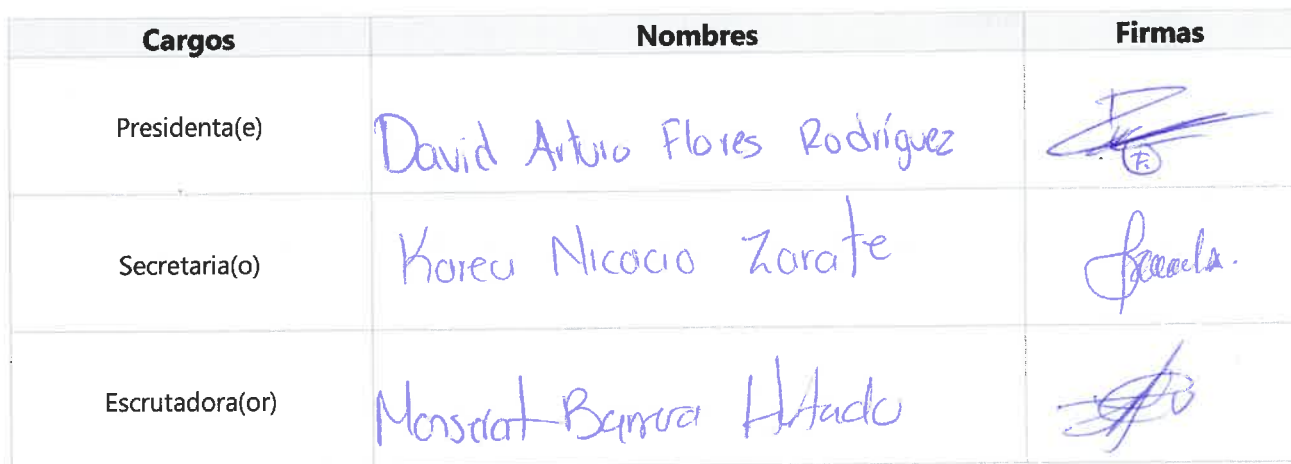 Cargos Nombres Firmas
Presidenta(e) David Arturo Flores Rodríguez
Secretaria(o) Karen Nicocio Zarate
Escrutadora(or) Monserrat Barrera Hurtado